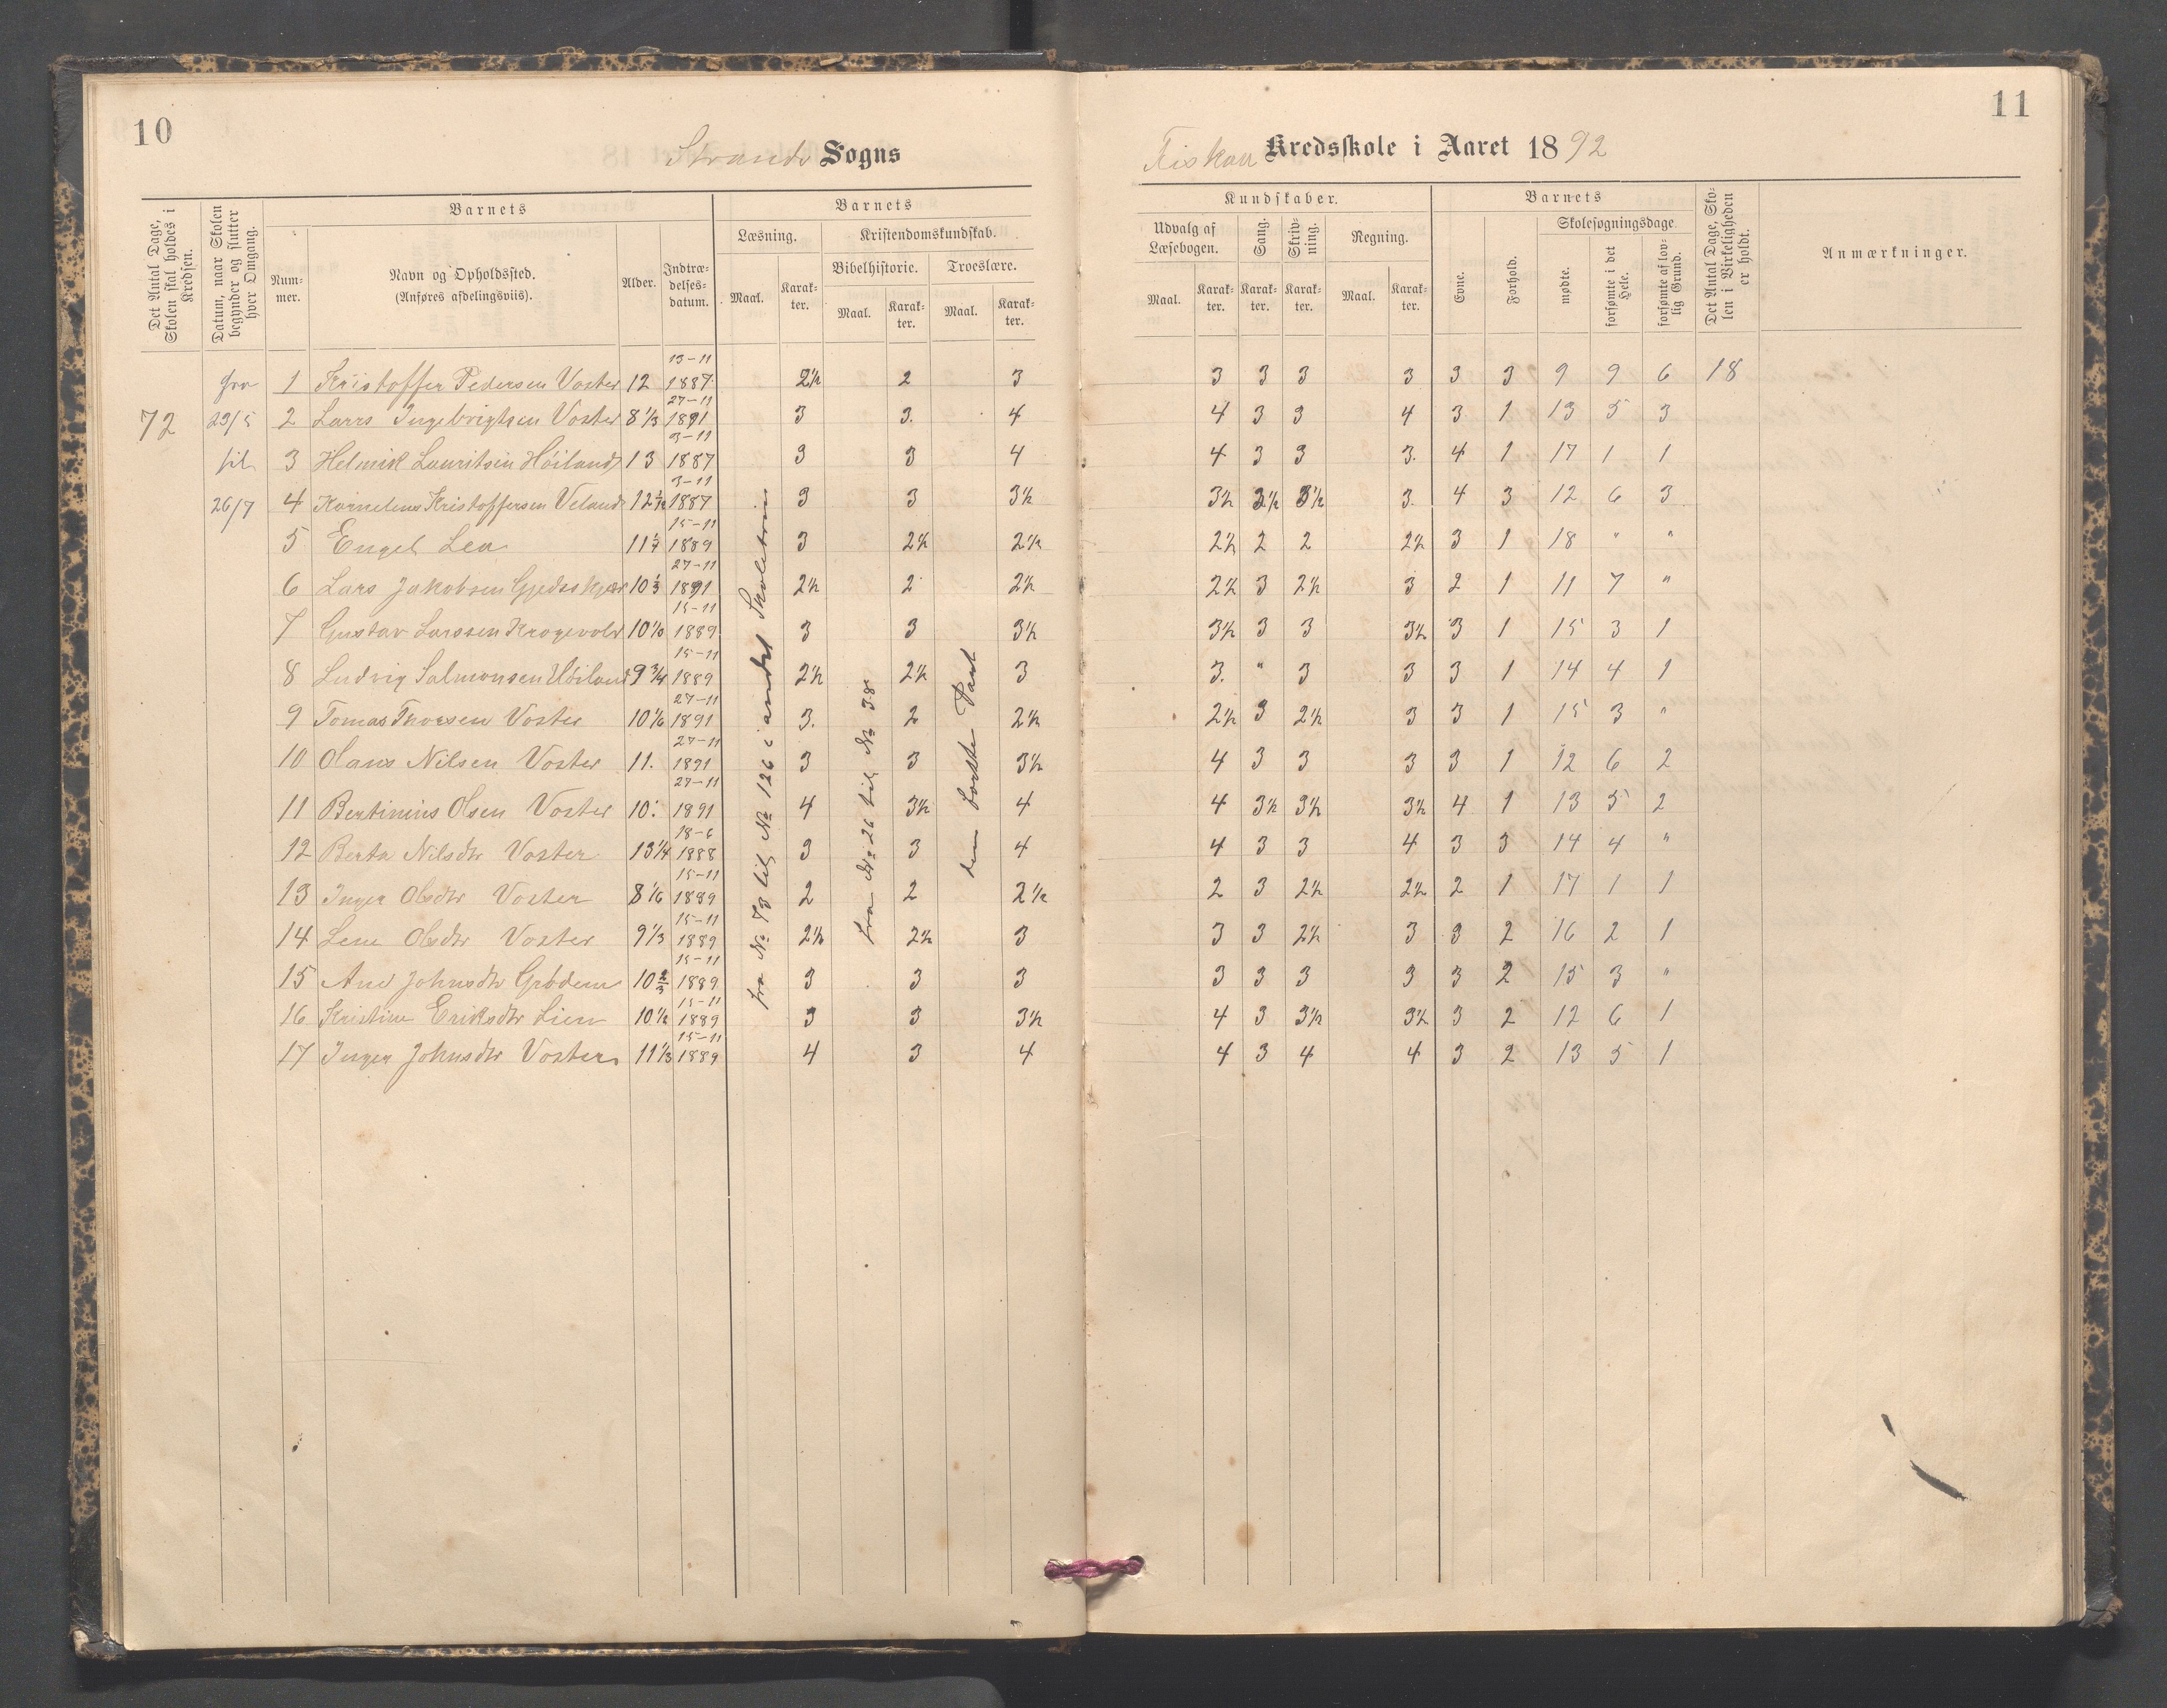 10
11
Strands Sogns
Fiskaa Kredsskole i Aaret 1892
Det Antal Dage, Skolen skal holdes i Kredsen.
Datum, naar Skolen begynder og slutter hver Omgang.
Barnets
Nummer.
Navn og Opholdssted.
(Anføres afdelingsviis).
Alder.
Indtrædelsesdatum.
Barnets
Læsning.
Kristendomskundskab.
Bibelhistorie.
Troeslære.
Maal.
Karakter.
Maal.
Karakter.
Maal.
Karakter.
Kundskaber.
Udvalg af Læsebogen.
Sang.
Skrivning.
Regning.
Maal.
Karakter.
Karakter.
Karakter.
Maal.
Karakter.
Barnets
Evne.
Forhold.
Skolesøgningsdage
mødte.
forsømte i det Hele.
forsømte af lovlig Grund.
Det Antal Dage, Skolen i Virkeligheden er holdt.
Anmærkninger.
72
fra
23/5
til
26/7
1 Kristoffer Pedersen Voster 12 13-11 1887 2½ 2 3 3 3 3 3 3 3 9 9 6 18
2 Lars Ingebrigtsen Voster 8⅓ 27-11 1891 3 3. 4 4 3 3 4 3 1 13 5 3
3 Helmik Lauritsen Höiland 13 3-11 1887 3 3 4 4 3 3 3. 4 1 17 1 1
4 Kornelius Kristoffersen Veland 12½ 3-11 1887 3 3 3½ 3½ 3½ 3½ 3. 4 3 12 6 3
5 Engel Lea 11 15-11 1889 3 2½ 2½ 2½ 2 2 2½ 3 1 18 " "
6 Lars Jakobsen Gjedsskjær 10⅓ 27-11 1891 2½ 2 2½ 2½ 3 2½ 3 2 1 11 7 "
7 Gustav Larssen Krogevold 10 15-11 1889 3 3 3½ 3½ 3 3 3½ 3 1 15 3 1
8 Ludvig Salmonsen Höiland 9¾ 15-11 1889 2½ 2½ 3 3. " 3 3 3 1 14 4 1
9 Tomas Thorsen Voster 10⅙ 27-11 1891 3. 2 2½ 2½ 3 2½ 3 3 1 15 3 "
10 Olaus Nilsen Voster 11. 27-11 1891 3 3 3½ 4 3 3 3 3 1 12 6 2
11 Bertinius Olsen Voster 10. 27-11 1891 4 3½ 4 4 3½ 3½ 3½ 4 1 13 5 2
12 Berta Nilsdtr Voster 13¼ 18-6 1888 3 3 4 4 3 3 4 3 3 14 4 "
13 Inger Olsdtr Voster 8⅙ 15-11 1889 2 2 2½ 2 3 2½ 2½ 2 1 17 1 1
14 Lene Olsdtr Voster 9⅓ 15-11 1889 2½ 2½ 3 3 3 2½ 3 3 2 16 2 1
15 Ane Johnsdtr Grödem 10⅔ 15-11 1889 3 3 3 3 3 3 3 3 2 15 3 "
16 Kristine Eriksdtr Lien 10½ 15-11 1889 3 3 3½ 4 3 3½ 3½ 3 2 12 6 1
17 Inger Johnsdtr Voster 11⅓ 15-11 1889 4 3 4 4 3 4 4 3 2 13 5 1
fra № 73 til № 126 i andet Skoletrin
fra № 26 til № 38
den første Part